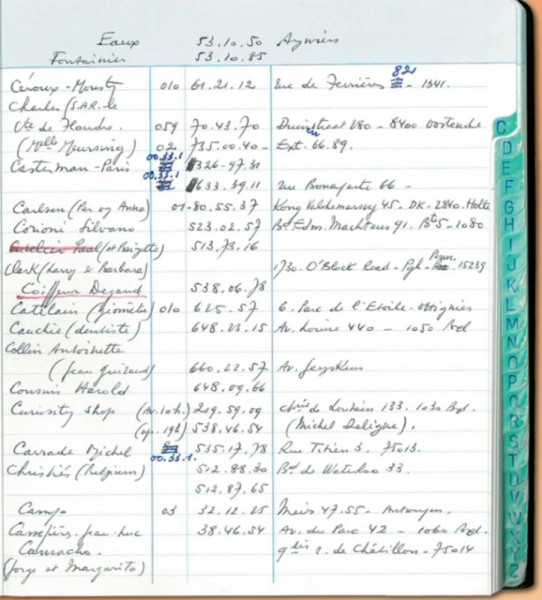 Eaux 53.10.50 Aywiers
Fontainier 53.10.85
Céroux-Mousty 010 61.21.12 Rue de Ferrières 82 - 1341.
Charles (S.A.R. le
Cte de Flandre. 059 70.43.70 Duinstraat 180 - 8400 Oostende
(Melle Meursing) 02 735.00.40 - Ext. 66.89.
Casterman-Paris 00.33.1 326-47.31
00.33.1 633.39.11 rue Bonaparte 66 -
Carlsen (Per og Anna) 01-80.55.37 Kong Valdemarsvej 45. DK-2840. Holte
Corioni Silvano 523.02.57 Bd Edm. Machtens 91. Bte5-1080
Paul (et Brigitte) 513.73.16
Clark (Larry & Barbara) 1730. O'Block Road - Pgh - Penn. 15239
Coiffeur Degand 538.06.78
Catelain (géomètre) 010 625.57 6. Parc de l'Etoile. Ottignies
Cauchie (dentiste) 648.23.15 Av. Louise 440 - 1050 Bxl
Collin Antoinette
(Jean Guiraud) 660.22.57 Av.
Cousins Harold 648.09.66
Curiosity Shop (Av. 10h.) 219.59.09 chée de Louvain 133. 1030 Bxl.
(ap. 19h) 538.46.54 (Michel Deligne).
Carrade Michel 00.33.1. 535.17.78 Rue Titien 3. 75013.
Christie's (Belgium) 512.88.30 Bd de Waterloo 33.
512.87.65
Camp 03 32.12.25 Meir 47.55 - Antwerpen.
Casséfiers Jean-Luc 38.46.54 Av. du Parc 42 - 1060 Bxl.
Camacho. 2. de Châtillon - 75014
(Jorge et Margarita)
C
D
E
F
G
H
I
J
K
L
M
N
O
P
Q
R
S
T
U
V
W
X
Y
Z